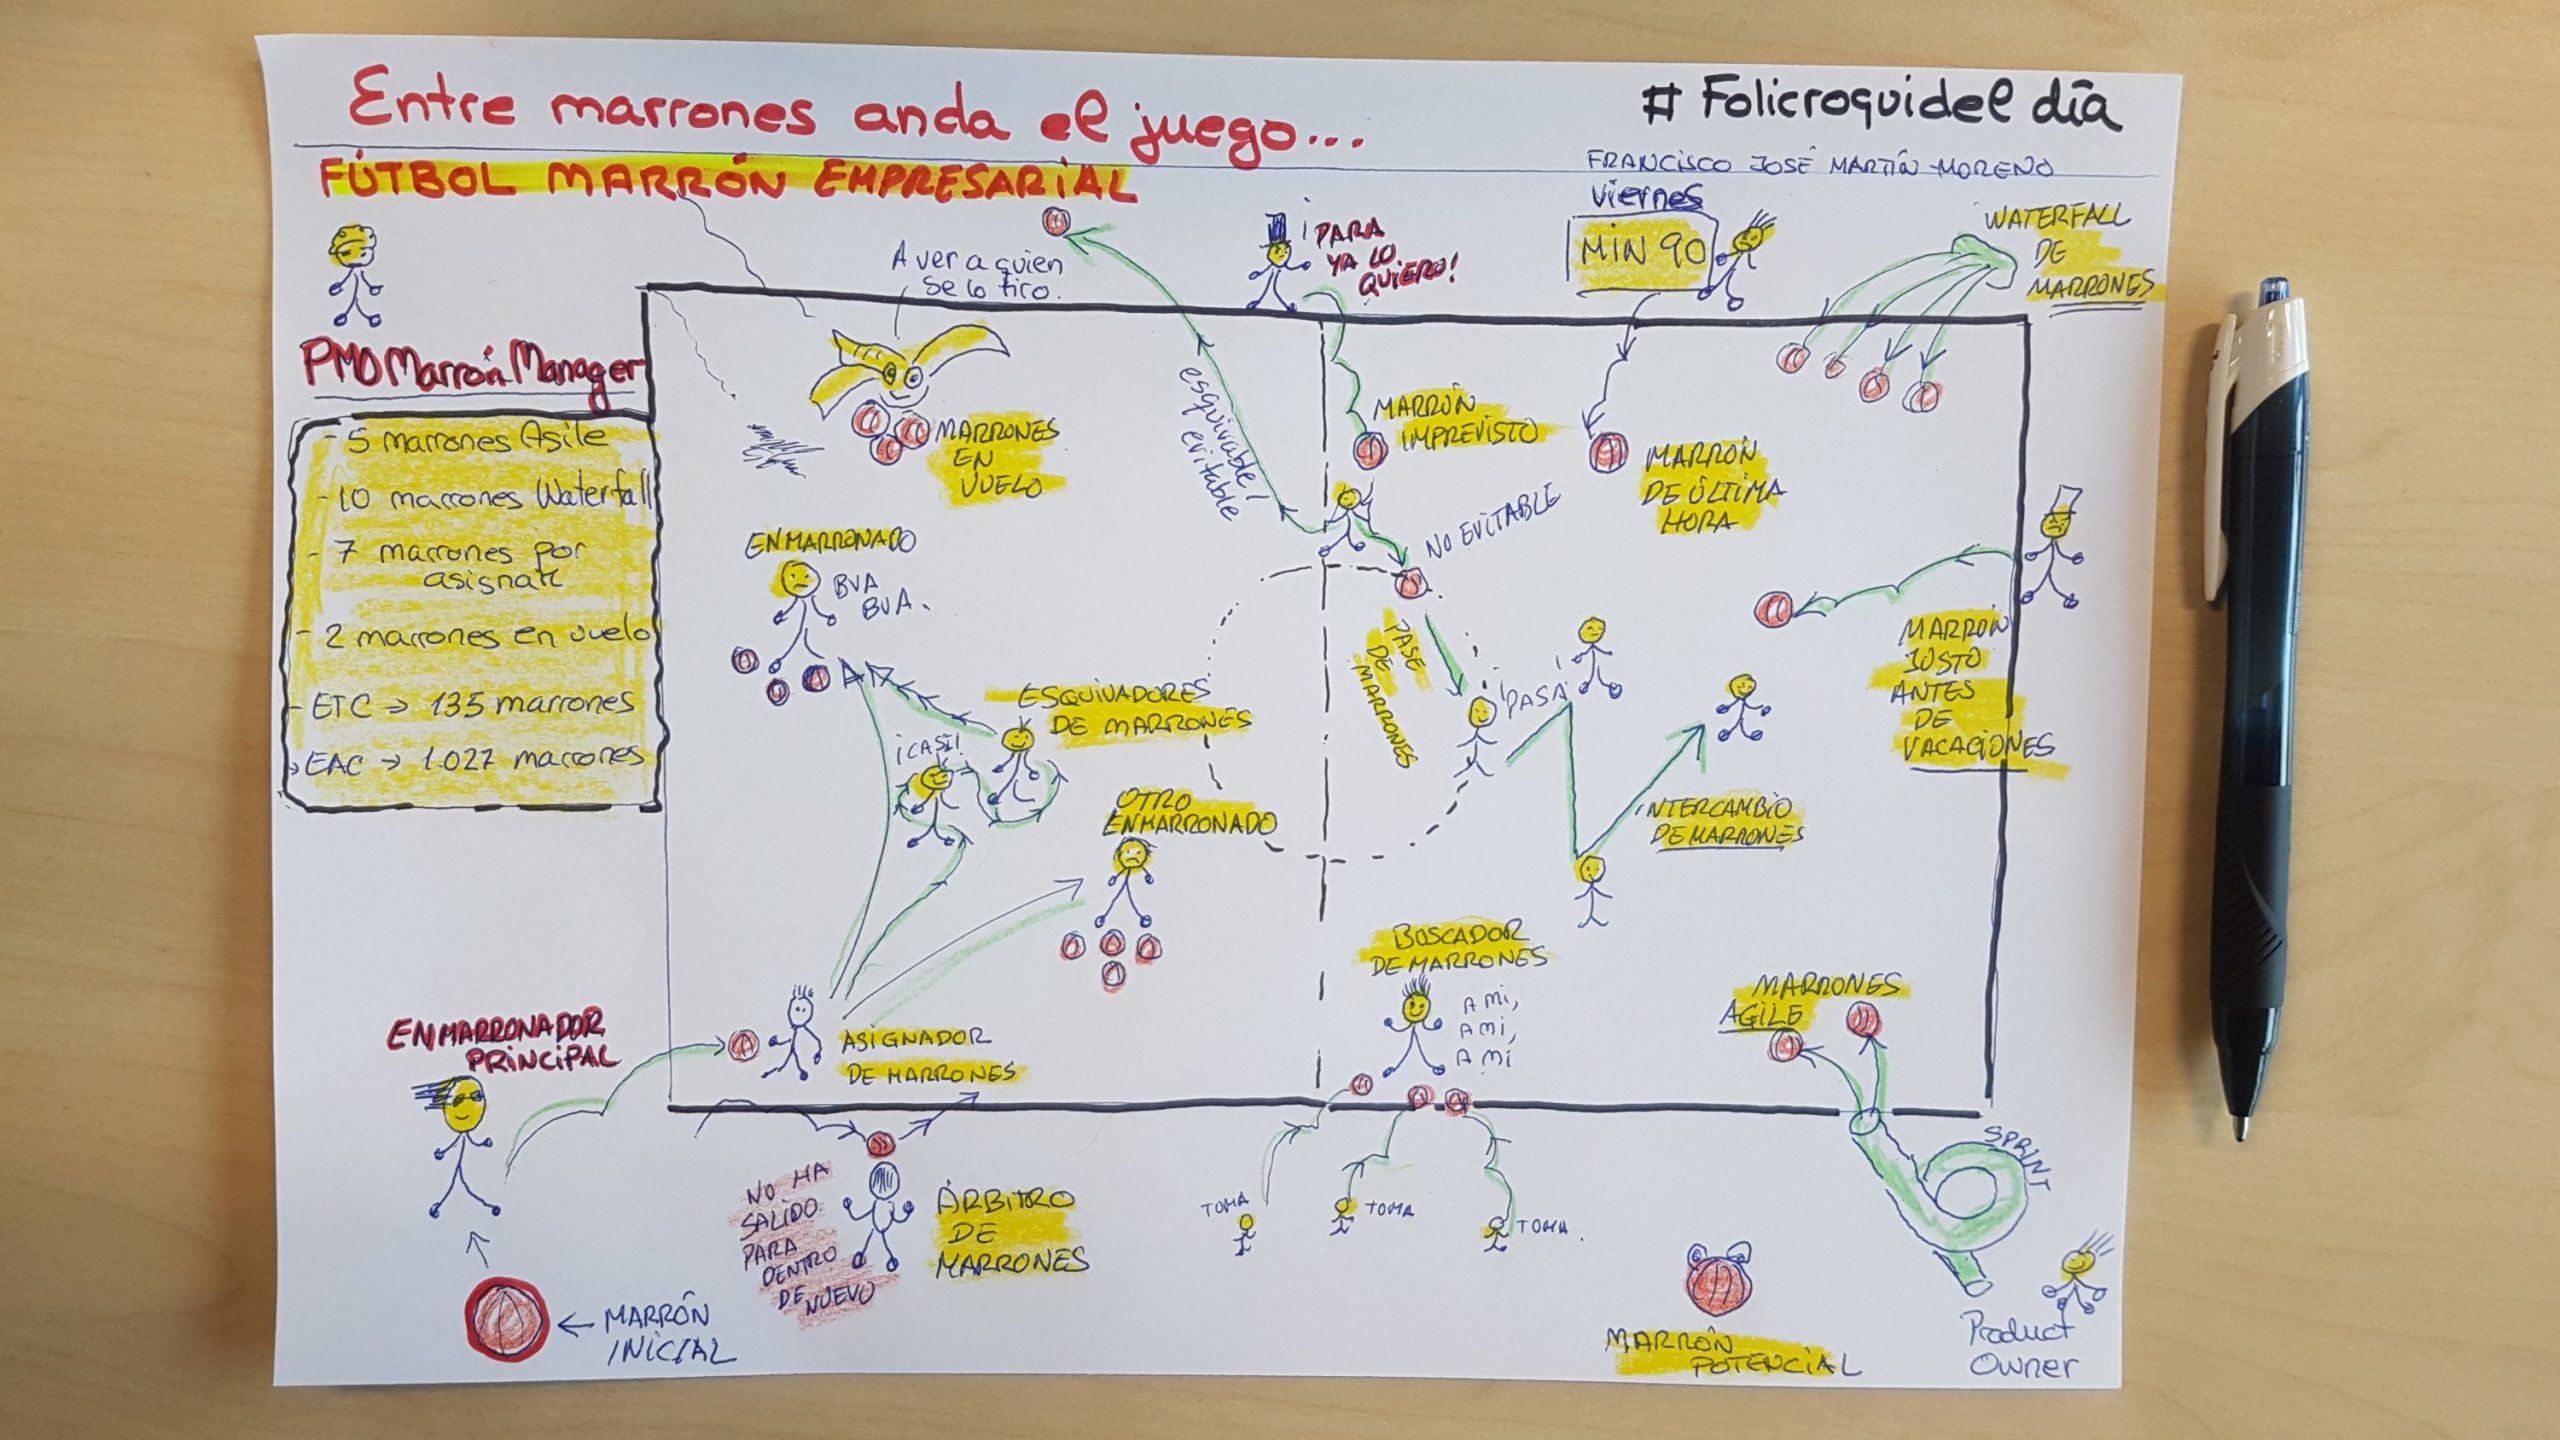 Entre marrones anda el juego...
# Folicroquidel día
FÚTBOL MARRÓN EMPRESARIAL
FRANCISCO JOSÉ MARTÍN-MORENO
PMO Marrón Manager
- 5 marrones Agile
- 10 marrones Waterfall
- 7 marrones por
asignar
- 2 marrones en vuelo
- ETC → 135 marrones
→ EAC → 1.027 marrones
A ver a quien
se lo tiro.
MARRONES
EN
VUELO
esquivable/
evitable
¡PARA
YA LO
QUIERO!
MARRÓN
IMPREVISTO
NO EVITABLE
viernes
MIN 90
MARRÓN
DE ÚLTIMA
HORA
WATERFALL
DE
MARRONES
ENMARRONADO
BUA
BUA.
ESQUIVADORES
DE MARRONES
¡CASI!
OTRO
ENMARRONADO
PASE
DE
MARRONES
¡PASA!
INTERCAMBIO
DE MARRONES
MARRÓN
JUSTO
ANTES
DE
VACACIONES
ENMARRONADOR
PRINCIPAL
MARRÓN
INICIAL
ASIGNADOR
DE MARRONES
NO HA
SALIDO
PARA
DENTRO
DE
NUEVO
ÁRBITRO
DE
MARRONES
BUSCADOR
DE MARRONES
A MI,
A MI,
A MÍ
TOMA
TOMA
TOMA.
MARRONES
AGILE
SPRINT
Product
Owner
MARRÓN
POTENCIAL